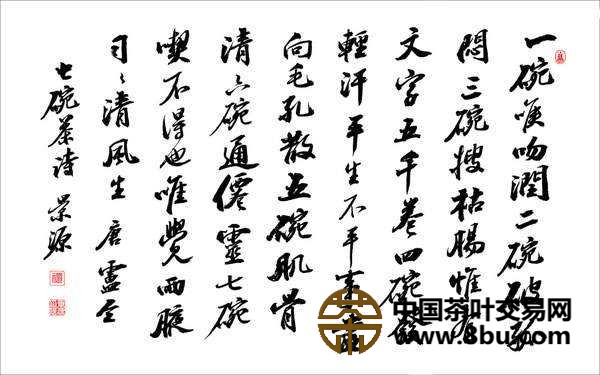 一碗喉吻潤二碗破孤
悶三碗搜枯腸惟有
文字五千卷四碗發
輕汗平生不平事盡
向毛孔散五碗肌骨
清六碗通僊靈七碗
喫不得也唯覺兩腋
習〻清風生 唐盧仝
七碗茶诗 景源
茶
中国茶叶交易网
www.8bu.com